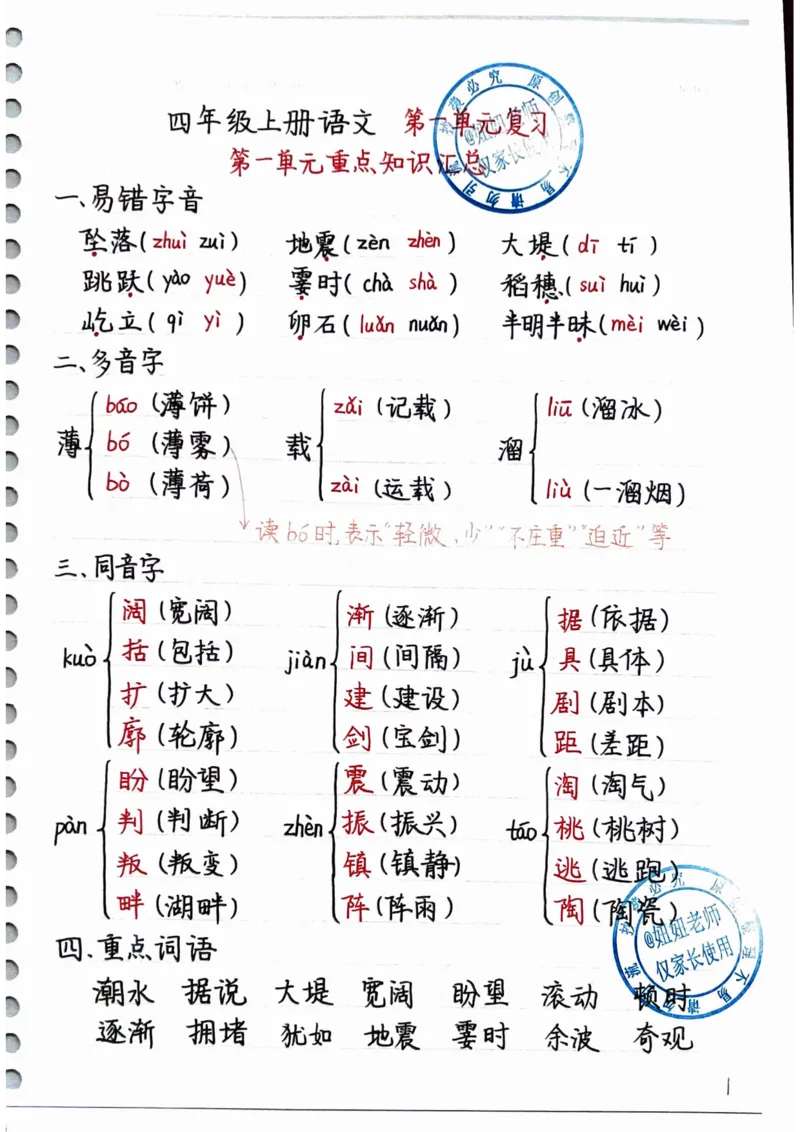 四年级上册语文 第一单元复习
第一单元重点知识汇总
一、易错字音
坠落(zhuì zuì) 地震(zèn zhèn) 大堤(dī tí)
跳跃(yào yuè) 霎时(chà shà) 稻穗(suì huì)
屹立(qì yì) 卵石(luǎn nuǎn) 半明半昧(mèi wèi)
二、多音字
薄 báo (薄饼) bó (薄雾) bò (薄荷)
载 zǎi (记载) zài (运载)
溜 liū (溜冰) liù (一溜烟)
读bó时,表示"轻微、少""不庄重""迫近"等
三、同音字
kuò 阔(宽阔) 括(包括) 扩(扩大) 廓(轮廓)
jiàn 渐(逐渐) 间(间隔) 建(建设) 剑(宝剑)
jù 据(依据) 具(具体) 剧(剧本) 距(差距)
pàn 盼(盼望) 判(判断) 叛(叛变) 畔(湖畔)
zhèn 震(震动) 振(振兴) 镇(镇静) 阵(阵雨)
táo 淘(淘气) 桃(桃树) 逃(逃跑) 陶(陶瓷)
四.重点词语
潮水 据说 大堤 宽阔 盼望 滚动 顿时
逐渐 拥堵 犹如 地震 霎时 余波 奇观
1
@妞妞老师
仅家长使用
@妞妞老师
仅家长使用